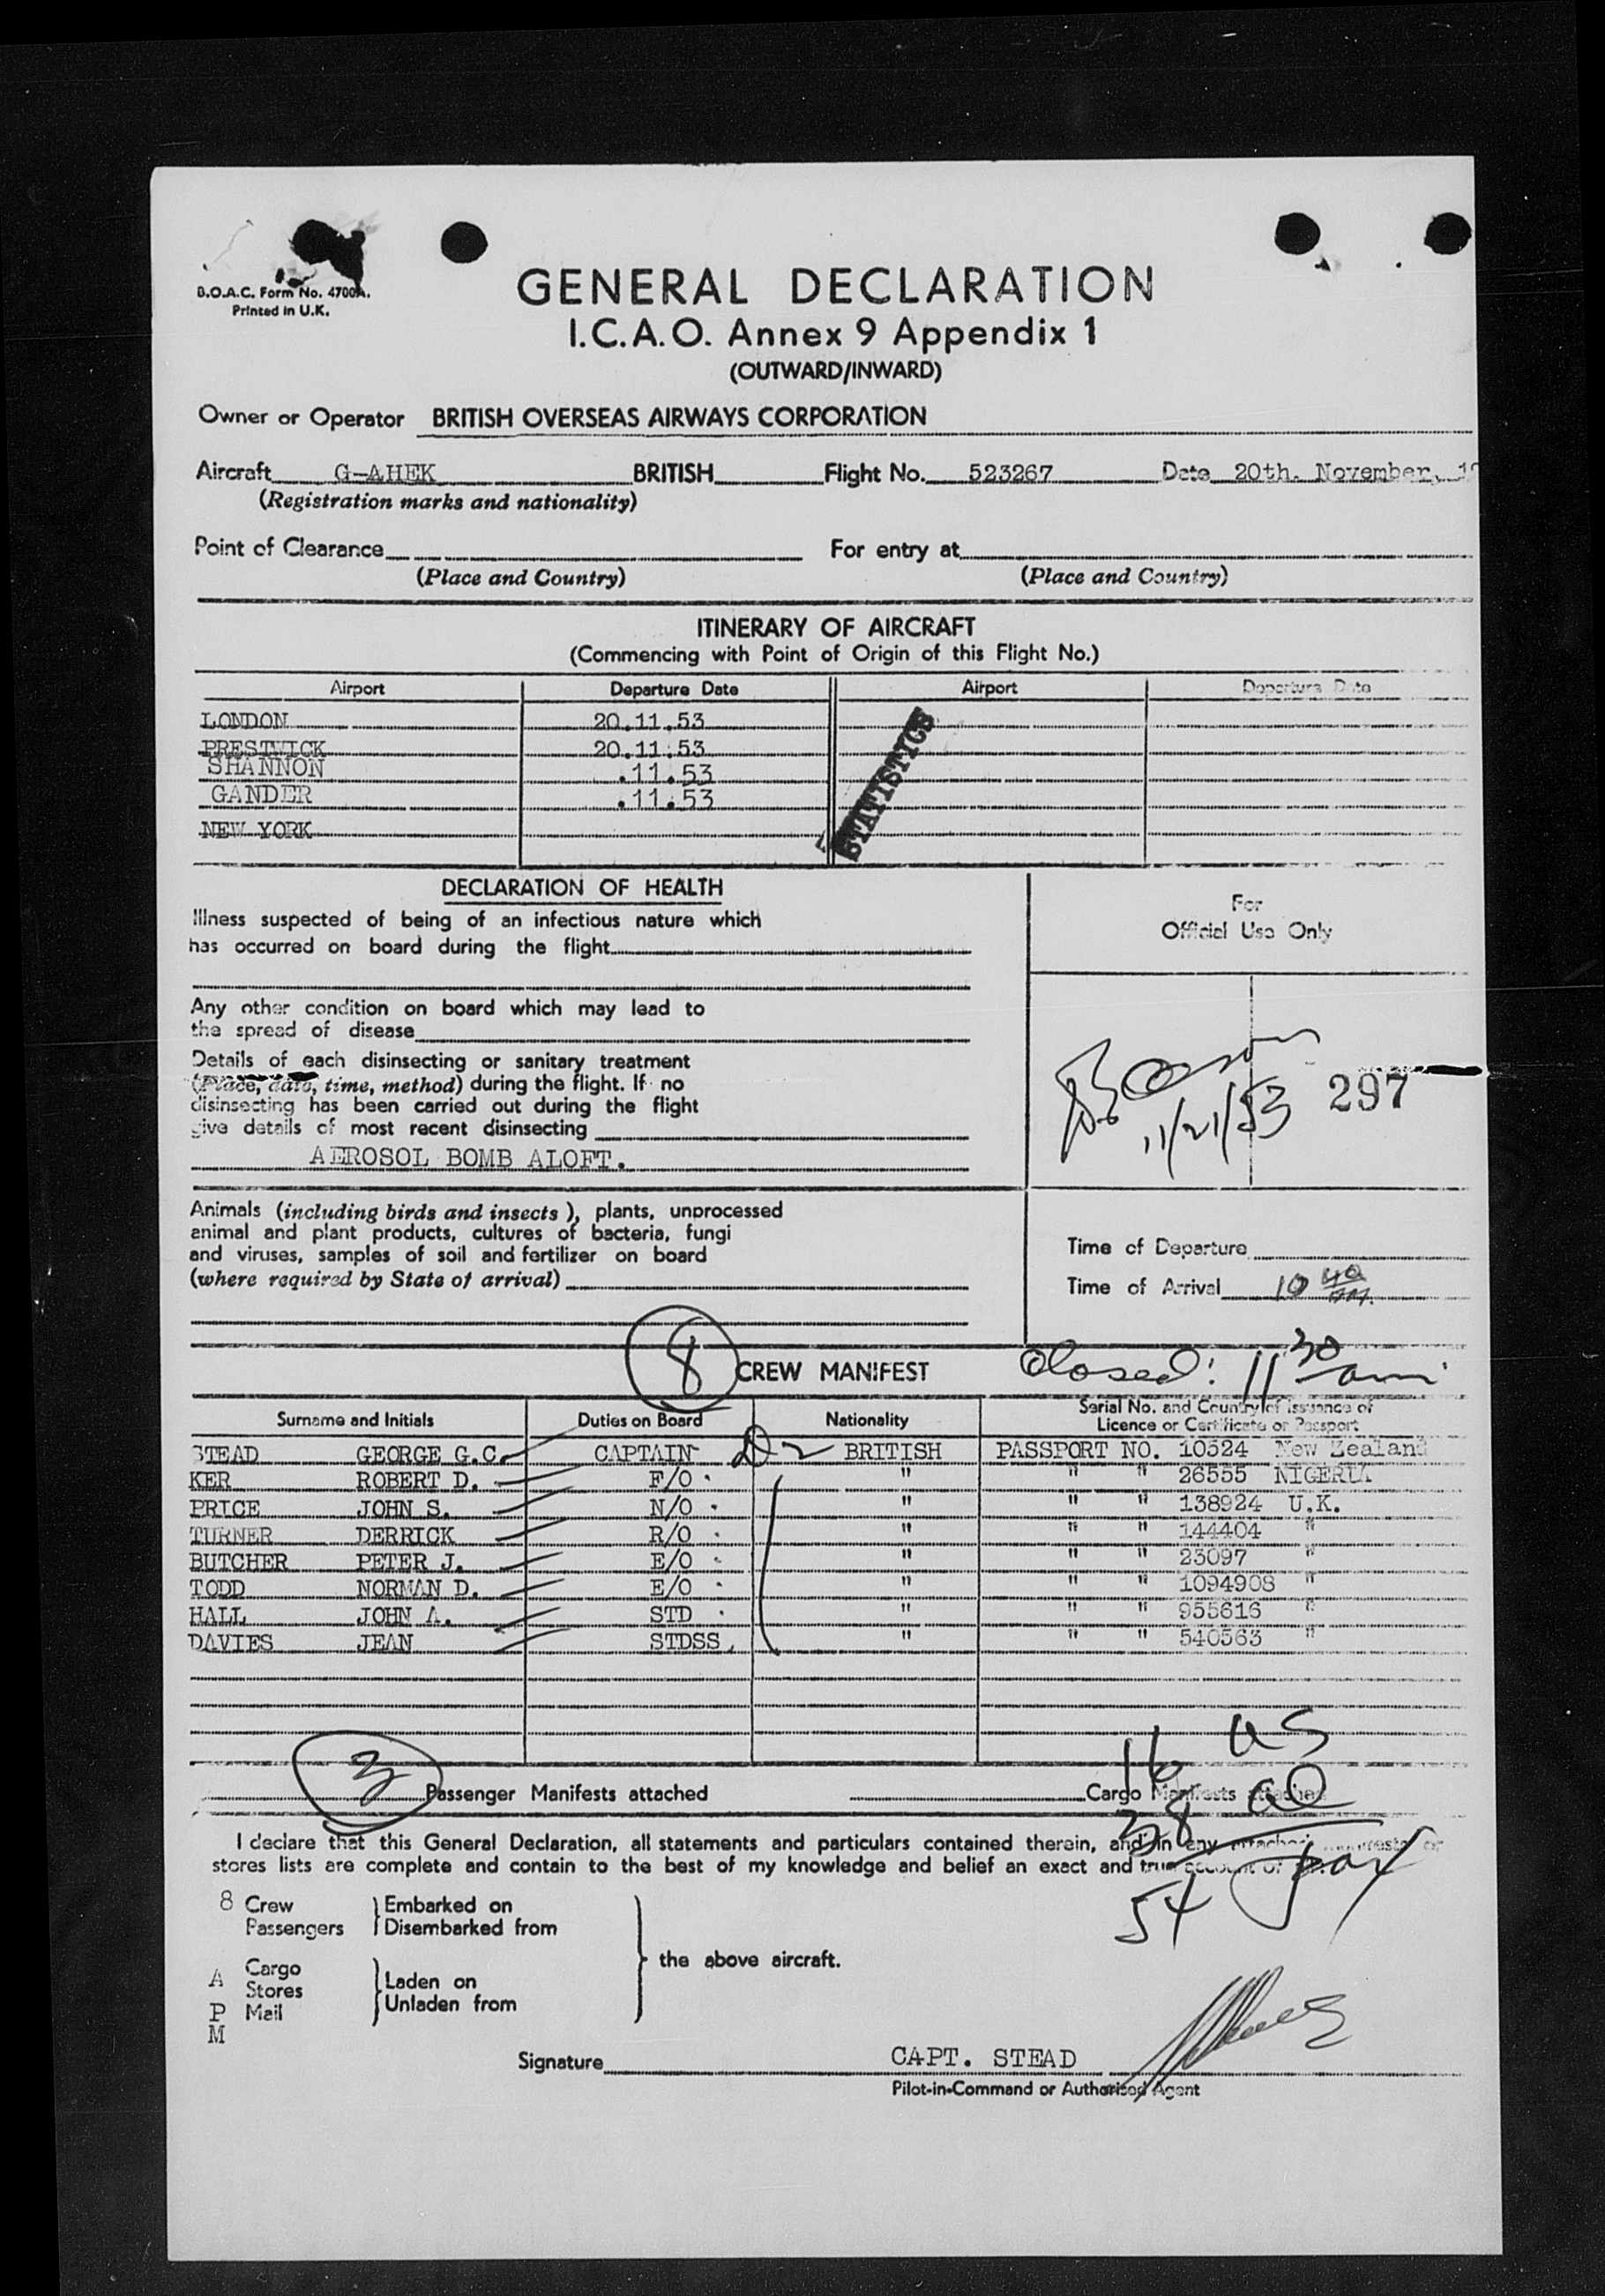 B.O.A.C. Form No. 4700A.
Printed in U.K.
GENERAL DECLARATION
I.C.A.O. Annex 9 Appendix 1
(OUTWARD/INWARD)
Owner or Operator BRITISH OVERSEAS AIRWAYS CORPORATION
Aircraft G-AHEK BRITISH Flight No. 523267 Date 20th. November, 19
(Registration marks and nationality)
Point of Clearance For entry at
(Place and Country) (Place and Country)
ITINERARY OF AIRCRAFT
(Commencing with Point of Origin of this Flight No.)
Airport Departure Date Airport Departure Date
LONDON 20.11.53
PRESTWICK 20.11.53
SHANNON .11.53
GANDER .11.53
NEW YORK
STATISTICS
DECLARATION OF HEALTH
Illness suspected of being of an infectious nature which
has occurred on board during the flight
Any other condition on board which may lead to
the spread of disease
Details of each disinsecting or sanitary treatment
(Place, date, time, method) during the flight. If no
disinsecting has been carried out during the flight
give details of most recent disinsecting
AEROSOL BOMB ALOFT.
For
Official Use Only
11/21/53 297
Animals (including birds and insects), plants, unprocessed
animal and plant products, cultures of bacteria, fungi
and viruses, samples of soil and fertilizer on board
(where required by State of arrival)
Time of Departure
Time of Arrival 10 40 am.
8 CREW MANIFEST Closed: 11 30 am
Surname and Initials Duties on Board Nationality Serial No. and Country of issuance of
Licence or Certificate or Passport
STEAD GEORGE G.C. CAPTAIN D-2 BRITISH PASSPORT NO. 10524 New Zealand
KER ROBERT D. F/O " " " 26555 NIGERIA
PRICE JOHN S. N/O " " " 138924 U.K.
TURNER DERRICK R/O " " " 144404 "
BUTCHER PETER J. E/O " " " 23097 "
TODD NORMAN D. E/O " " " 1094908 "
HALL JOHN A. STD " " " 955616 "
DAVIES JEAN STDSS " " " 540563 "
16 US
3 Passenger Manifests attached Cargo Manifests attached
38 al
I declare that this General Declaration, all statements and particulars contained therein, and in any attached
stores lists are complete and contain to the best of my knowledge and belief an exact and true account of
54 pax
8 Crew Embarked on
Passengers Disembarked from
the above aircraft.
A Cargo Laden on
Stores
P Mail Unladen from
M
Signature CAPT. STEAD
Pilot-in-Command or Authorised Agent